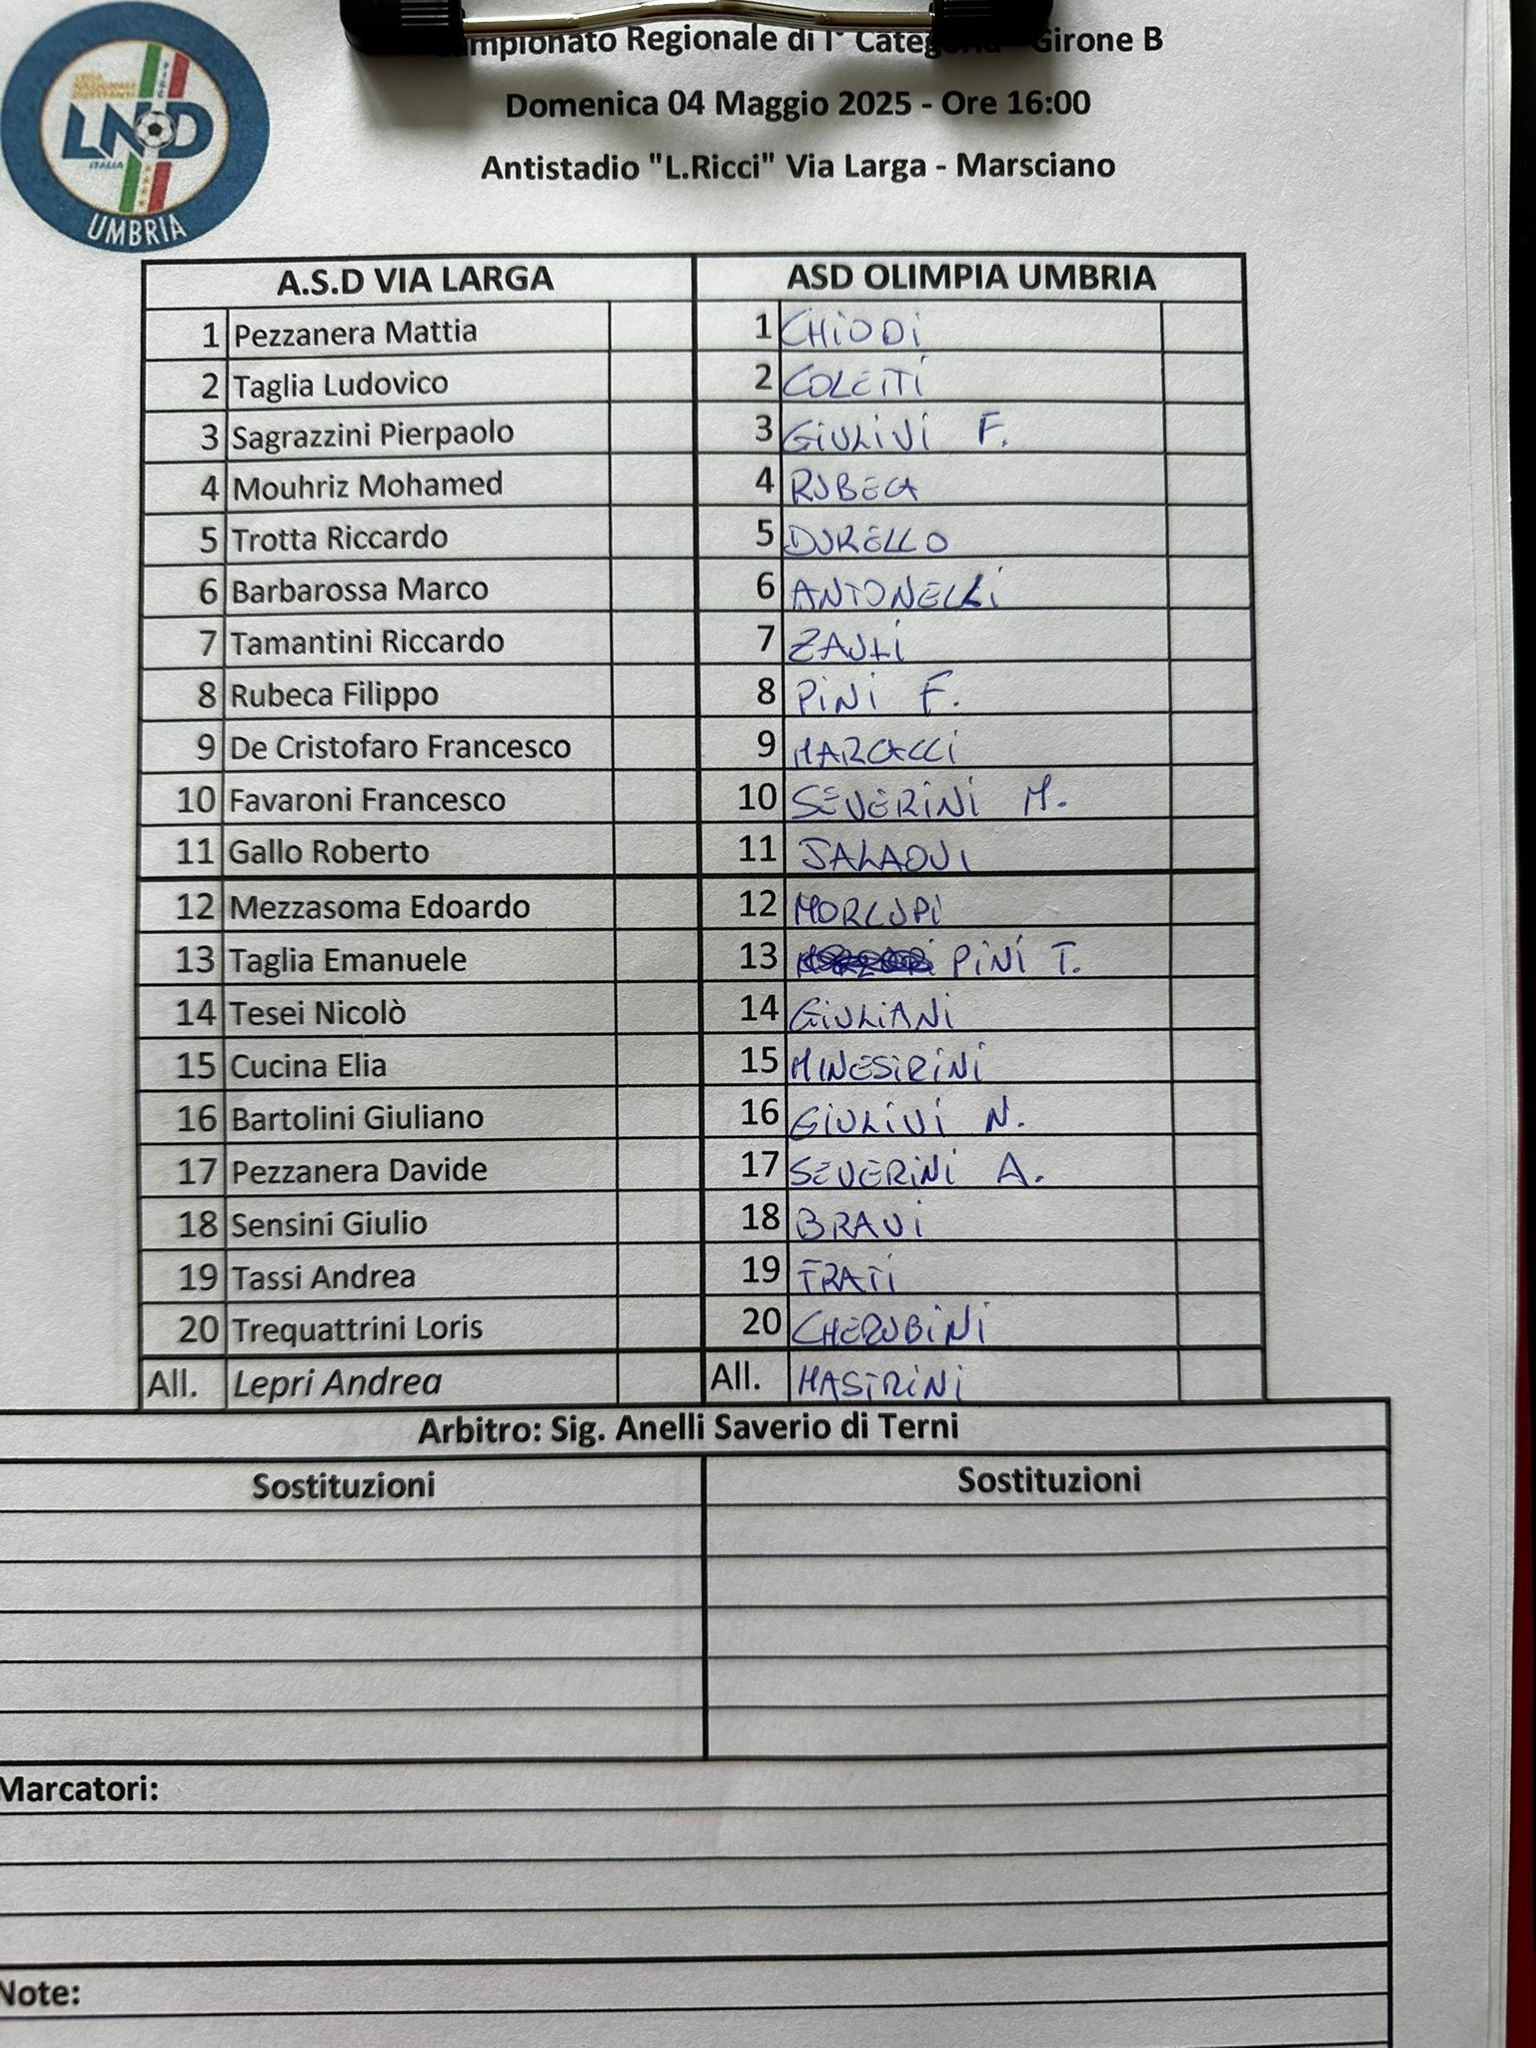 LEGA NAZIONALE DILETTANTI
LND
ITALIA
UMBRIA
Regionale di 1° Categoria - Girone B
Domenica 04 Maggio 2025 - Ore 16:00
Antistadio "L.Ricci" Via Larga - Marsciano
A.S.D VIA LARGA ASD OLIMPIA UMBRIA
1 Pezzanera Mattia 1 CHIODI
2 Taglia Ludovico 2 COLETTI
3 Sagrazzini Pierpaolo 3 GIULIVI F.
4 Mouhriz Mohamed 4 RUBECA
5 Trotta Riccardo 5 DURELLO
6 Barbarossa Marco 6 ANTONELLI
7 Tamantini Riccardo 7 ZAULI
8 Rubeca Filippo 8 PINI F.
9 De Cristofaro Francesco 9 MARCACCI
10 Favaroni Francesco 10 SEVERINI M.
11 Gallo Roberto 11 JALAOUI
12 Mezzasoma Edoardo 12 MORLUPI
13 Taglia Emanuele 13 PINI T.
14 Tesei Nicolò 14 GIULIANI
15 Cucina Elia 15 MINESTRINI
16 Bartolini Giuliano 16 GIULIVI N.
17 Pezzanera Davide 17 SEVERINI A.
18 Sensini Giulio 18 BRAVI
19 Tassi Andrea 19 FRATI
20 Trequattrini Loris 20 CHERUBINI
All. Lepri Andrea All. MASTRINI
Arbitro: Sig. Anelli Saverio di Terni
Sostituzioni Sostituzioni
Marcatori:
Note: